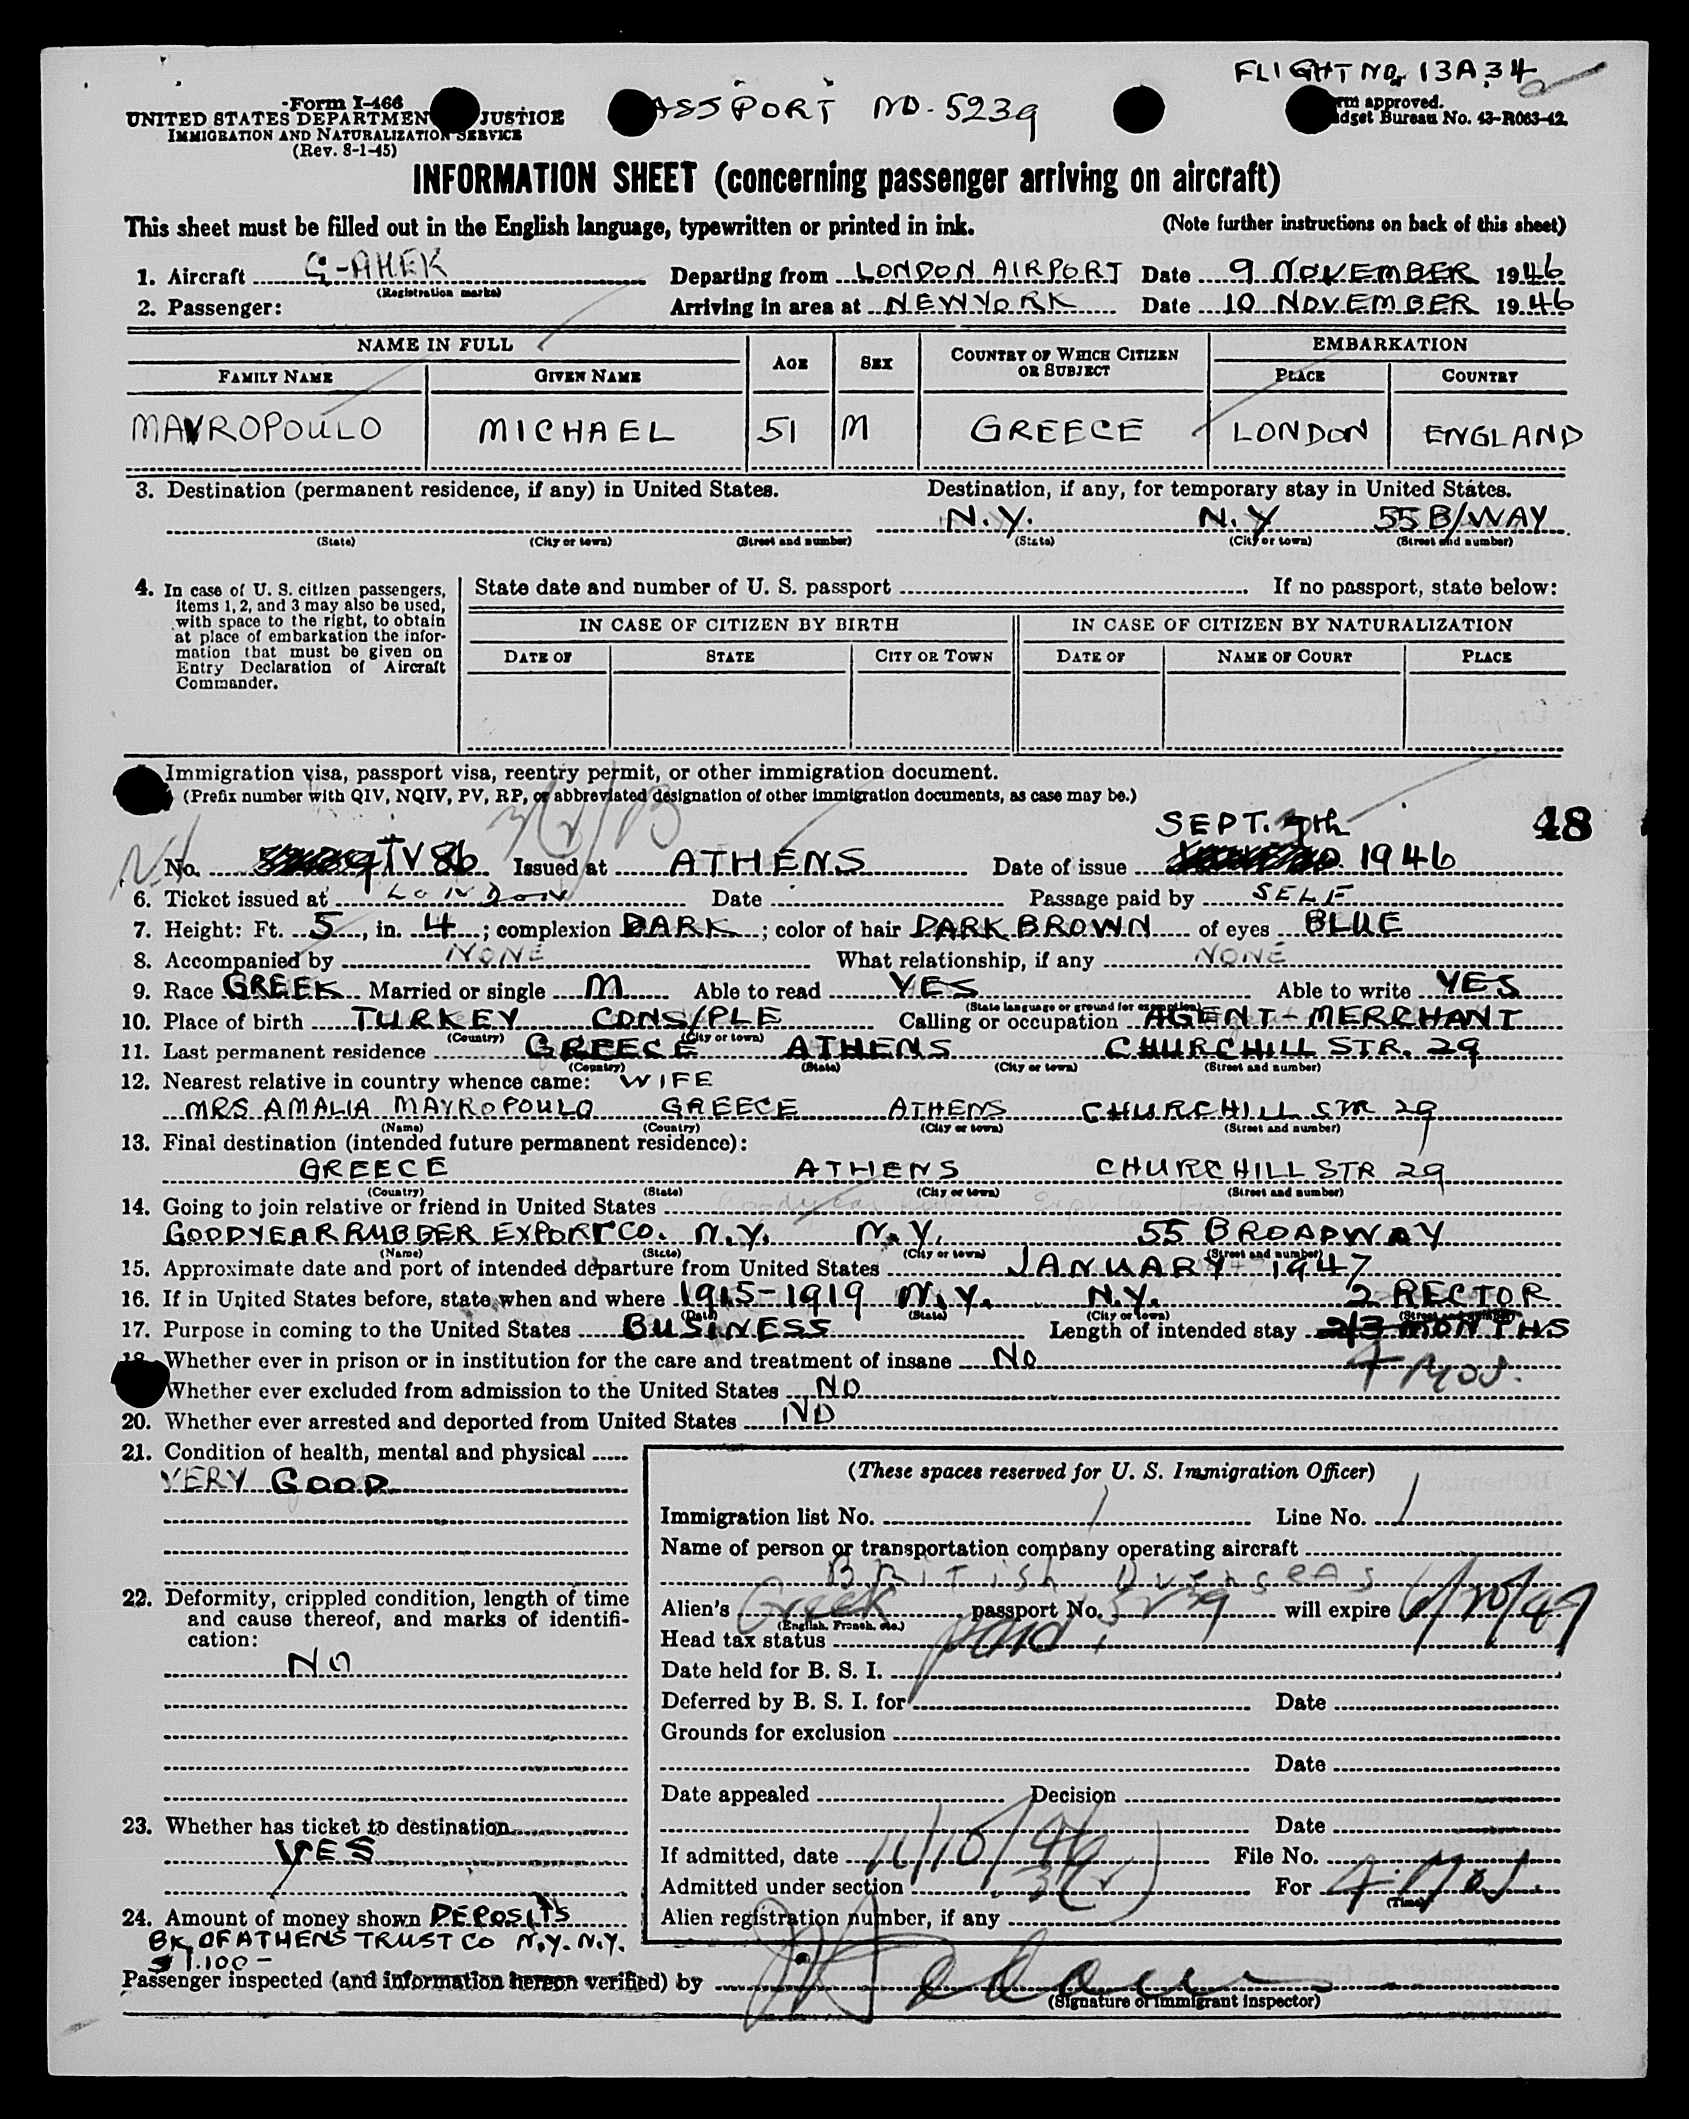 FLIGHT No. 13A34
Form I-466
UNITED STATES DEPARTMENT JUSTICE
IMMIGRATION AND NATURALIZATION SERVICE
(Rev. 8-1-45)
PASSPORT NO. 5239
approved.
Budget Bureau No. 43-R063-42.
INFORMATION SHEET (concerning passenger arriving on aircraft)
This sheet must be filled out in the English language, typewritten or printed in ink. (Note further instructions on back of this sheet)
1. Aircraft G-AHEK Departing from LONDON AIRPORT Date 9 NOVEMBER 1946
(Registration marks)
2. Passenger: Arriving in area at NEW YORK Date 10 NOVEMBER 1946
NAME IN FULL AGE SEX COUNTRY OF WHICH CITIZEN OR SUBJECT EMBARKATION
FAMILY NAME GIVEN NAME PLACE COUNTRY
MAVROPOULO MICHAEL 51 M GREECE LONDON ENGLAND
3. Destination (permanent residence, if any) in United States. Destination, if any, for temporary stay in United States.
N.Y. N.Y 55 B/WAY
(State) (City or town) (Street and number) (State) (City or town) (Street and number)
4. In case of U. S. citizen passengers, items 1, 2, and 3 may also be used, with space to the right, to obtain at place of embarkation the information that must be given on Entry Declaration of Aircraft Commander.
State date and number of U. S. passport If no passport, state below:
IN CASE OF CITIZEN BY BIRTH IN CASE OF CITIZEN BY NATURALIZATION
DATE OF STATE CITY OR TOWN DATE OF NAME OF COURT PLACE
Immigration visa, passport visa, reentry permit, or other immigration document.
(Prefix number with QIV, NQIV, PV, RP, or abbreviated designation of other immigration documents, as case may be.)
SEPT. 9th 48
No. TV 86 Issued at ATHENS Date of issue 1946
6. Ticket issued at LONDON Date Passage paid by SELF
7. Height: Ft. 5, in. 4; complexion DARK; color of hair DARK BROWN of eyes BLUE
8. Accompanied by NONE What relationship, if any NONE
9. Race GREEK Married or single M Able to read YES Able to write YES
(State language or ground for exemption)
10. Place of birth TURKEY CONS/PLE Calling or occupation AGENT-MERCHANT
(Country) (City or town)
11. Last permanent residence GREECE ATHENS CHURCHILL STR. 29
(Country) (State) (City or town) (Street and number)
12. Nearest relative in country whence came: WIFE
MRS AMALIA MAVROPOULO GREECE ATHENS CHURCHILL STR 29
(Name) (Country) (City or town) (Street and number)
13. Final destination (intended future permanent residence):
GREECE ATHENS CHURCHILL STR 29
(Country) (State) (City or town) (Street and number)
14. Going to join relative or friend in United States
GOODYEAR RUBBER EXPORT CO. N.Y. N.Y. 55 BROADWAY
(Name) (State) (City or town) (Street and number)
15. Approximate date and port of intended departure from United States JANUARY 1947
16. If in United States before, state when and where 1915-1919 N.Y. N.Y. 2 RECTOR
(Date) (State) (City or town) (Street and number)
17. Purpose in coming to the United States BUSINESS Length of intended stay 2/3 MONTHS
18. Whether ever in prison or in institution for the care and treatment of insane NO 4 Mos.
Whether ever excluded from admission to the United States NO
20. Whether ever arrested and deported from United States NO
21. Condition of health, mental and physical
VERY GOOD
22. Deformity, crippled condition, length of time and cause thereof, and marks of identification:
NO
23. Whether has ticket to destination
YES
24. Amount of money shown DEPOSITS
BK. OF ATHENS TRUST CO N.Y. N.Y.
$ 1.100-
(These spaces reserved for U. S. Immigration Officer)
Immigration list No. 1 Line No. 1
Name of person or transportation company operating aircraft
British Overseas
Alien's Greek passport No. 5239 will expire 6/20/47
(English, French, etc.)
Head tax status paid
Date held for B. S. I.
Deferred by B. S. I. for Date
Grounds for exclusion
Date
Date appealed Decision
Date
If admitted, date 11/10/46 File No.
Admitted under section 3(2) For 4 Mos.
(Time)
Alien registration number, if any
Passenger inspected (and information hereon verified) by
(Signature of immigrant inspector)